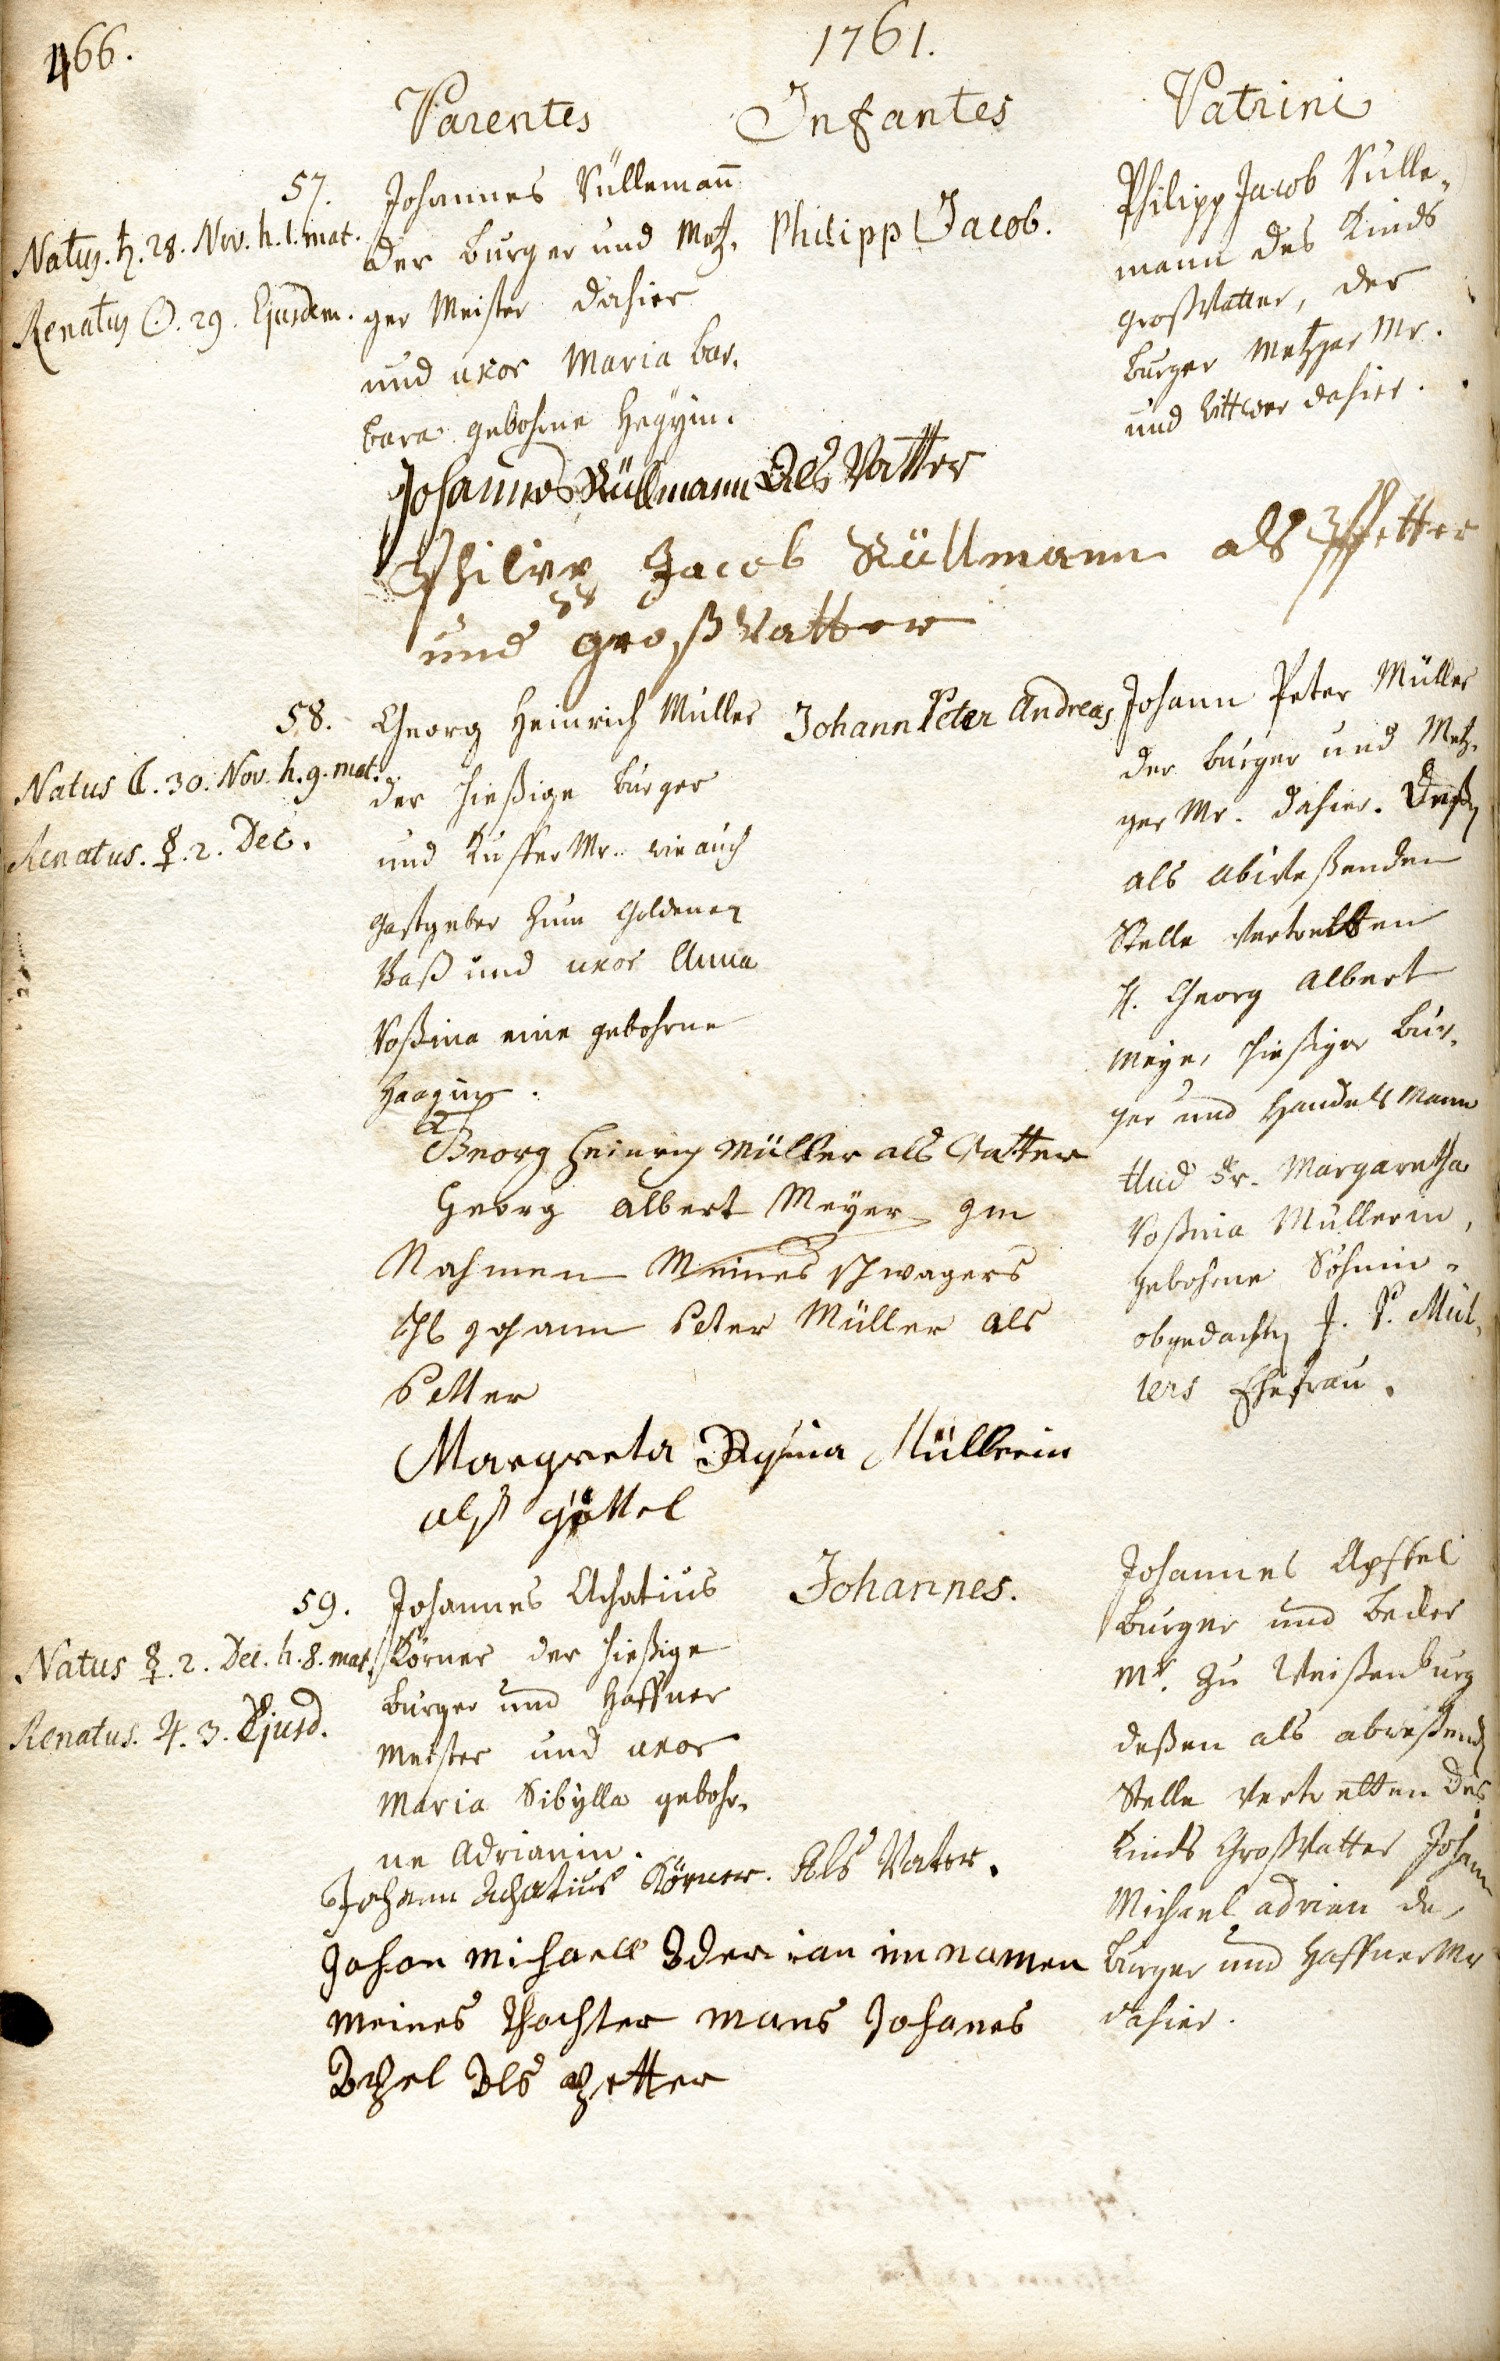 466.
1761.
Parentes
Infantes
Patrini
57.
Natus. ♄. 28. Nov. h. 1. mat.
Renatus ☉. 29. Ejusdem.
Johannes Küllemañ
der burger und Metz,
ger Meister dahier
und uxor Maria bar,
bara gebohrne
Philipp Jacob.
Philipp Jacob Külle,
mann des Kinds
großvatter, der
burger Metzger Mr.
und Wittwer dahier.
Johannes Küllmann Als Vatter
Philipp Jacob Küllmann als Pfetter
und großvatter
58.
Natus ☾. 30. Nov. h. 9. mat.
Renatus. ☿. 2. Dec.
Georg Heinrich Müller
der hießige burger
und Kuffer Mr. wie auch
Gastgeber zum Goldenen
Faß und uxor Anna
Rosina eine gebohrne
Johann Peter Andreas
Johann Peter Müller
der burger und Metz,
ger Mr. dahier. Deßen
als abweßenden
Stelle vertretten
H. Georg Albert
Meyer, hießiger bur,
ger und Handels Mann
und Fr. Margaretha
Rosina Müllerin,
gebohrne
obgedachten J. P. Mül,
lers Ehefrau.
Georg Heinrich Müller als Vatter
Georg Albert Meyer Im
Nahmen Meines schwagers
H Johann Peter Müller als
Petter
Margreta Rosina Müllerin
alß göttel
59.
Natus ☿. 2. Dec. h. 8. mat.
Renatus. ♃. 3. Ejusd.
Johannes Achatius
Körner der hießige
burger und Haffner
Meister und uxor
Maria Sibylla gebohr,
ne Adrianin.
Johannes.
Johannes Apffel
burger und becker
Mr. zu Weißenburg
deßen als abweßenden
Stelle vertretten des
Kinds Großvatter Johann
Michael Adrian der
burger und Haffner Mr
dahier.
Johann Achatius Körner. Als Vater.
Johan Michaell Aderian im namen
meines Thochter mans Johanes
Als Petter